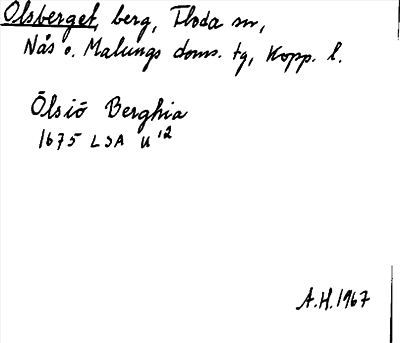 Olsberget, berg, Floda sn,
Nås o. Malungs doms. tg, Kopp. l.
Ölsiö Berghia
1675 LSA U 12
A.H. 1967